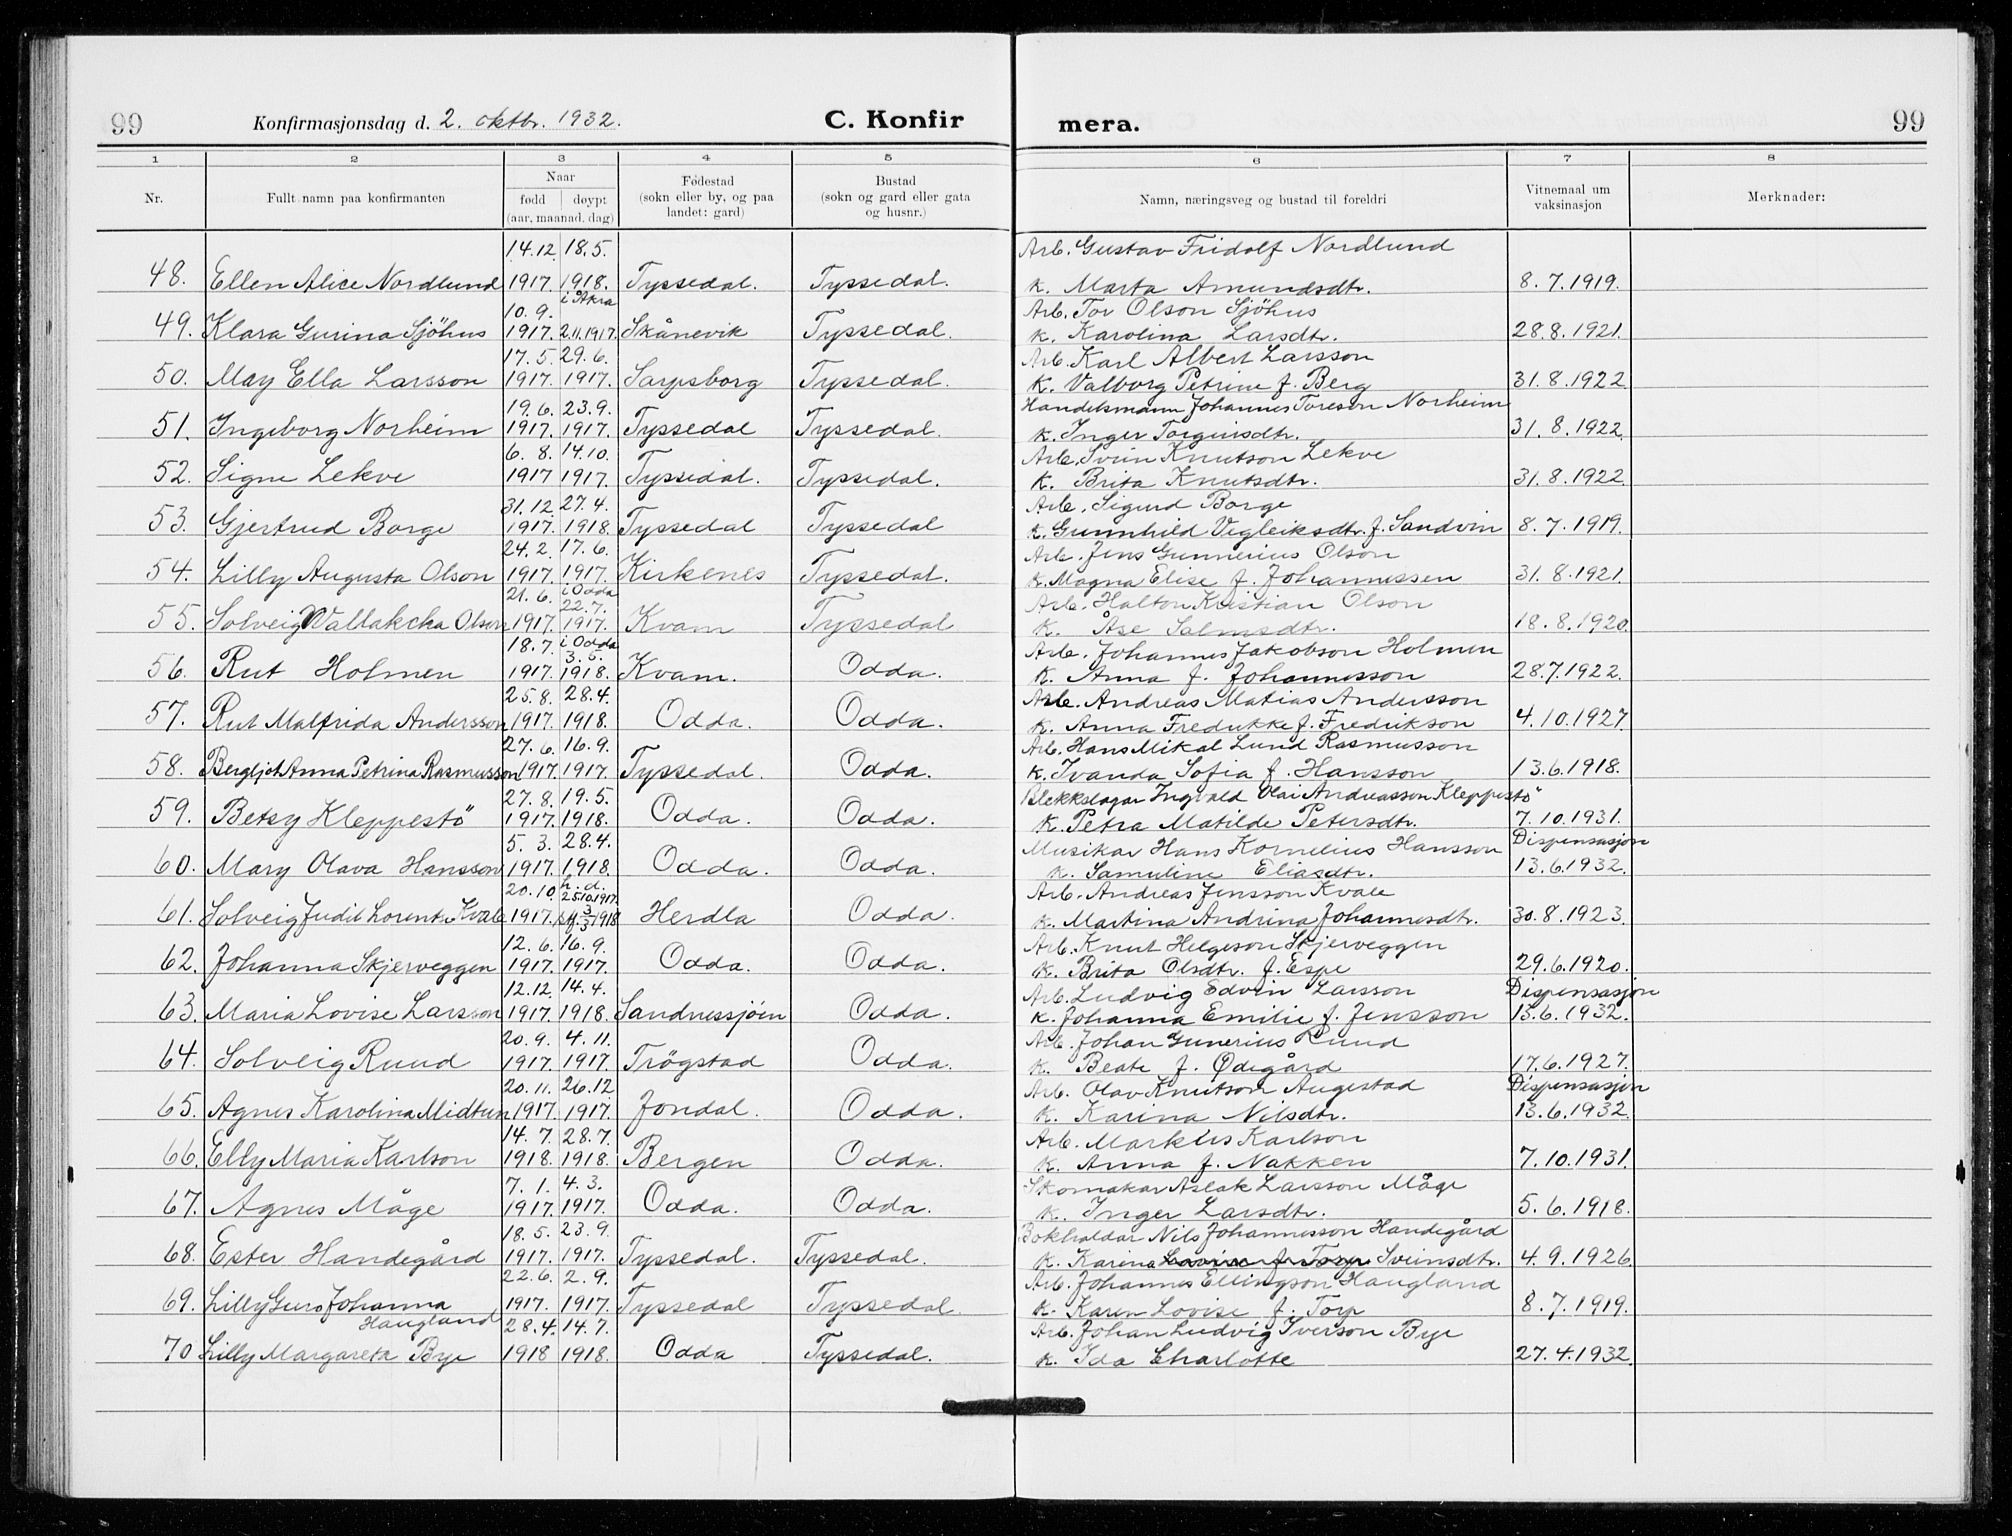 99 Konfirmasjonsdag d. 2. oktbr. 1932. C. Konfir mera. 99
1 2 3 4 5 6 7 8
Nr. Fullt namn paa konfirmanten Naar født døypt (aar, maanad, dag) Fødestad (sokn eller by, og paa landet: gard) Bustad (sokn og gard eller gata og husnr.) Namn, næringsveg og bustad til foreldri Vitnemaal um vaksinasjon Merknader:
14.12. 18.5. Arb. Gustav Fridolf Nordlund
48. Ellen Alice Nordlund 1917. 1918. Tyssedal. Tyssedal. k. Marta Amundsdtr. 8.7.1919.
10.9. i Åkra Arb. Tor Olson Sjöhus
49. Klara Gurina Sjöhus 1917. 2.11.1917. Skånevik Tyssedal. k. Karolina Larsdtr. 28.8.1921.
17.5. 29.6. Arb. Karl Albert Larsson
50. May Ella Larsson 1917. 1917. Sarpsborg Tyssedal. k. Valborg Petrine f. Berg 31.8.1922.
19.6. 23.9. Handelsmann Johannes Toreson Norheim
51. Ingeborg Norheim 1917. 1917. Tyssedal Tyssedal. k. Inger Torgeirsdtr. 31.8.1922.
6.8. 14.10. Arb. Svein Knutson Lekve
52. Signe Lekve 1917 1917. Tyssedal. Tyssedal. k. Brita Knutsdtr. 31.8.1922
31.12. 27.4. Arb. Sigurd Borge
53. Gjertrud Borge 1917. 1918. Tyssedal Tyssedal k. Gunnhild Vigleiksdtr. f. Sandvin 8.7.1919.
24.2. 17.6. Arb. Jens Gunnerius Olson
54. Lilly Augusta Olson 1917. 1917. Kirkenes Tyssedal. k. Magna Elise f. Johannessen 31.8.1921.
21.6. i Odda 22.7. Arb. Halton Kristian Olson
55. Solveig Olson 1917. 1917. Kvam Tyssedal k. Åse Salmsdtr. 18.8.1920.
18.7. i Odda 3.5. Arb. Johannes Jakobson Holmen
56. Rut Holmen 1917. 1918. Kvam. Odda. k. Anna f. Johannesson 28.7.1922.
25.8. 28.4. Arb. Andreas Matias Andersson
57. Rut Malfrida Andersson 1917. 1918. Odda. Odda. k. Anna Fredrikke f. Fredrikson 4.10.1927.
27.6. 16.9. Arb. Hans Mikal Lund Rasmusson
58. Bergljot Anna Petrina Rasmusson 1917. 1917. Tyssedal. Odda. k. Ivanda Sofia f. Hansson 13.6.1918.
27.8. 19.5. Blekkslagar Ingvald Olai Andreasson Kleppestö
59. Betsy Kleppestö 1917. 1918. Odda. Odda. k. Petra Matilde Petersdtr. 7.10.1931.
5.3. 28.4. Musikar Hans Kornelius Hansson Dispensasjon
60. Mary Olava Hansson 1917. 1918. Odda. Odda. k. Samuline Eliasdtr. 13.6.1932.
20.10. h.d. 25.10.1917. Arb. Andreas Jensson Kvale
61. Solveig Judit Lorents Kvale 1917. stf. 3/3 1918 Herdla Odda. k. Martina Andrina Johannesdtr. 30.8.1923.
12.6. 16.9. Arb. Knut Helgeson Skjerveggen
62. Johanna Skjerveggen 1917. 1917. Odda. Odda. k. Brita Olsdtr. f. Espe 29.6.1920.
12.12. 14.4. Arb. Ludvig Edvin Larsson Dispensasjon
63. Maria Lovise Larsson 1917. 1918. Sandnessjöen Odda. k. Johanna Emilie f. Jensson 13.6.1932.
20.9. 4.11. Arb. Johan Gunerius Ruud
64. Solveig Ruud 1917. 1917. Trögstad Odda. k. Beate f. Ødegård 17.6.1927.
20.11. 26.12 Arb. Olav Knutson Augestad Dispensasjon
65. Agnes Karolina Midtun 1917. 1917. Jondal. Odda. k. Karina Nilsdtr. 13.6.1932.
14.7. 28.7. Arb. Markus Karlson
66. Elly Maria Karlson 1918. 1918. Bergen Odda. k. Anna f. Nakken 7.10.1931.
7.1. 4.3. Skomakar Aslak Larsson Måge
67. Agnes Måge 1917. 1917. Odda. Odda. k. Inger Larsdtr. 5.6.1918.
18.5. 23.9. Bokhaldar Nils Johannesson Handegård
68. Ester Handegård 1917. 1917. Tyssedal. Tyssedal. k. Karina Lovise f. Torp Sveinsdtr. 4.9.1926.
22.6. 2.9. Arb. Johannes Ellingson Haugland
69. Lilly Guro Johanna Haugland 1917. 1917. Tyssedal Tyssedal k. Karen Lovise f. Torp 8.7.1919.
28.4. 14.7. Arb. Johan Ludvig Iverson Bye
70 Lilly Margareta Bye 1918 1918. Odda Tyssedal. k. Ida Charlotte 27.4.1932.